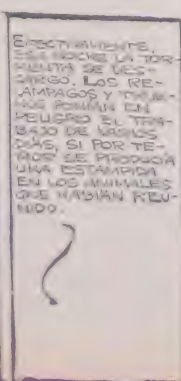 EFECTIVAMENTE,
ESA NOCHE LA TOR-
MENTA SE DES-
CARGÓ. LOS RE-
LÁMPAGOS Y TRUE-
NOS PONÍAN EN
PELIGRO EL TRA-
BAJO DE VARIOS
DÍAS, SI POR TE-
MOR SE PRODUCÍA
UNA ESTAMPIDA
EN LOS ANIMALES
QUE HABÍAN REU-
NIDO.